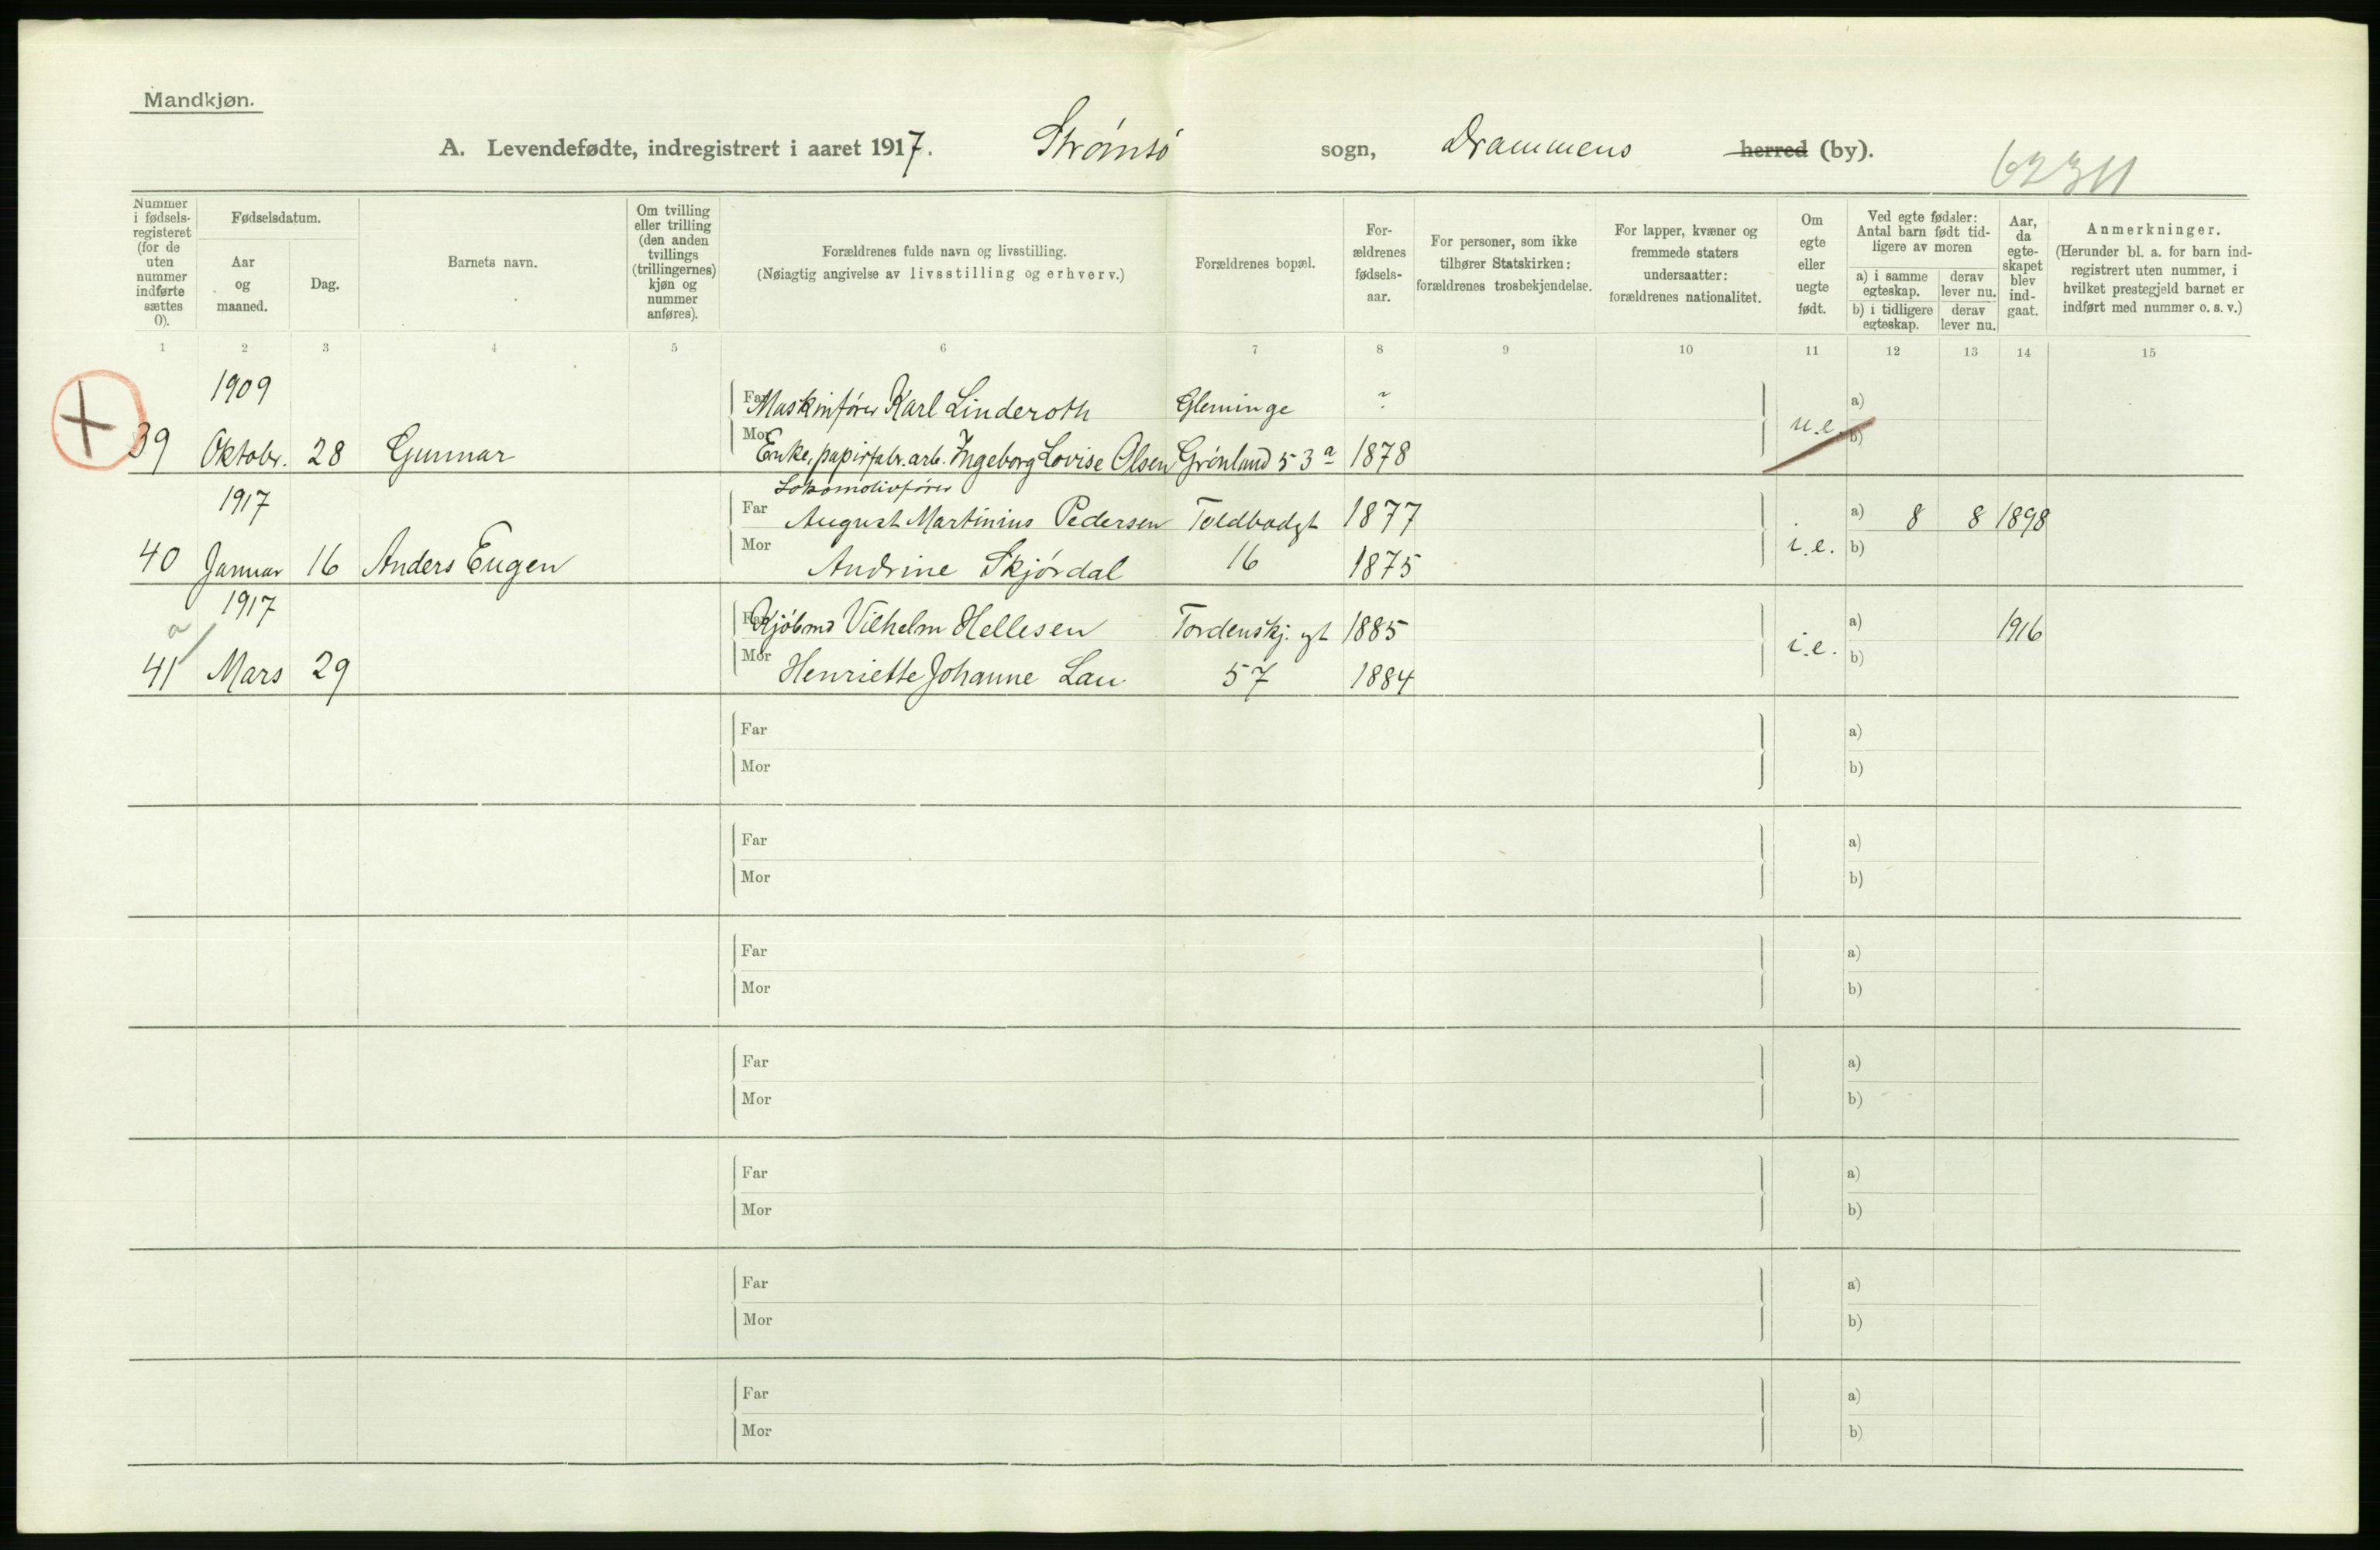 Mandkjøn.
A. Levendefødte, indregistrert i aaret 1917. Strømsö sogn, Drammens herred (by).
Nummer i fødsels-registeret (for de uten nummer indførte sættes 0).
Fødselsdatum.
Aar og maaned.
Dag.
Barnets navn.
Om tvilling eller trilling (den anden tvillings (trillingernes) kjøn og nummer anføres).
Forældrenes fulde navn og livsstilling.
(Nøiagtig angivelse av livsstilling og erhverv.)
Forældrenes bopæl.
For-ældrenes fødsels-aar.
For personer, som ikke tilhører Statskirken: forældrenes trosbekjendelse.
For lapper, kvæner og fremmede staters undersaatter: forældrenes nationalitet.
Om egte eller uegte født.
Ved egte fødsler: Antal barn født tid-ligere av moren
a) i samme egteskap.
derav lever nu.
b) i tidligere egteskap.
derav lever nu.
Aar, da egte-skapet blev ind-gaat.
Anmerkninger.
(Herunder bl. a. for barn ind-registrert uten nummer, i hvilket prestegjeld barnet er indført med nummer o. s. v.)
1 2 3 4 5 6 7 8 9 10 11 12 13 14 15
1909 Far Maskinfører Karl Linderoth Gleminge ? a)
39 Oktobr. 28 Gunnar Mor Enke, papirfabr. arb. Ingeborg Lovise Olsen Grönland 53a 1878 u.e. b)
Lokomotivfører
1917 Far August Martinius Pedersen Toldbodgt 1877 a) 8 8 1898
40 Januar 16 Anders Eugen Mor Andrine Skjördal 16 1875 i.e. b)
1917 Far Kjöbmd Vilhelm Hellesen Tordenskj. gt 1885 a) 1916
41 Mars 29 Mor Henriette Johanne Lau 57 1884 i.e. b)
Far a)
Mor b)
Far a)
Mor b)
Far a)
Mor b)
Far a)
Mor b)
Far a)
Mor b)
Far a)
Mor b)
Far a)
Mor b)